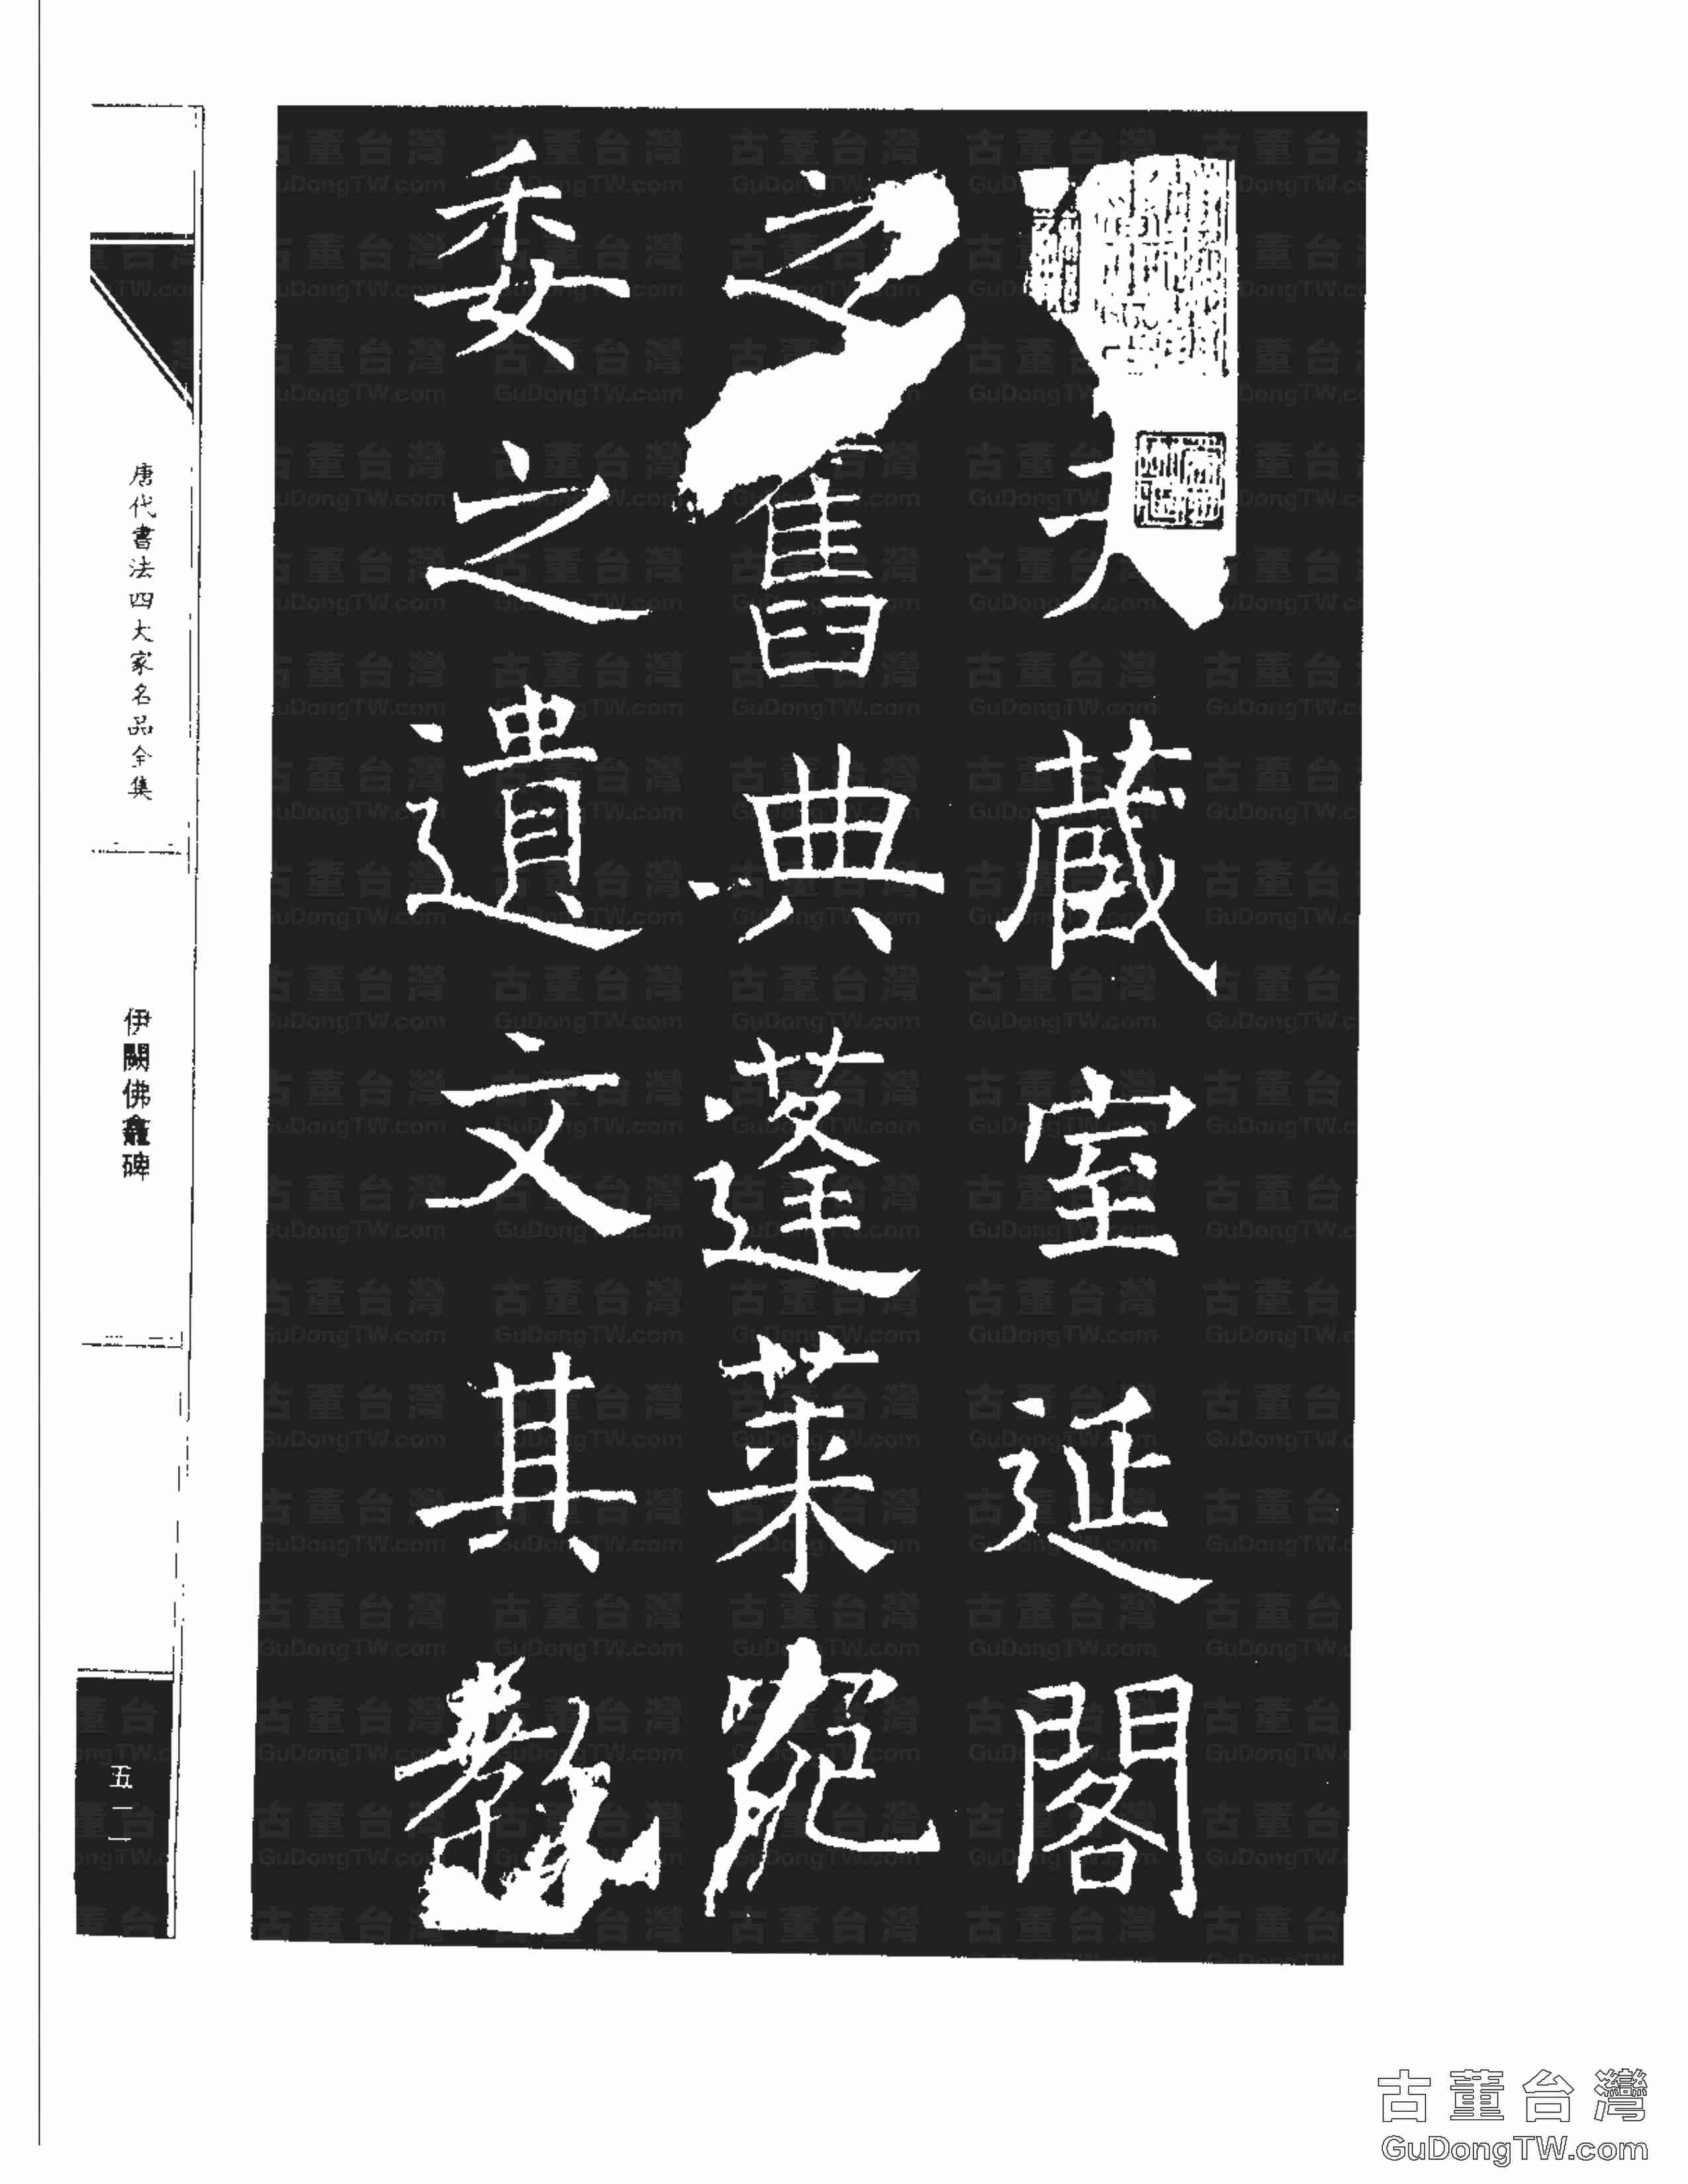 夫藏室延閣
之舊典蓬萊宛
委之遺文其教
唐代書法四大家名品全集
伊闕佛龕碑
五一一
古董台灣
GuDongTW.com